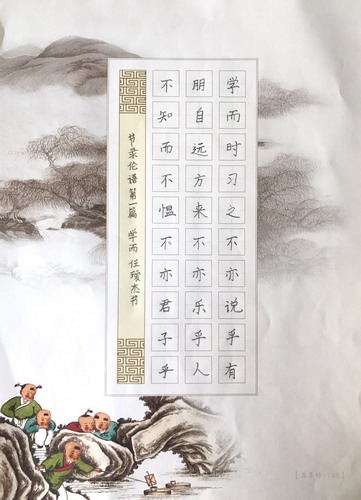 学而时习之不亦说乎有
朋自远方来不亦乐乎人
不知而不愠不亦君子乎
节录伦语第一篇 学而 任瑷杰书